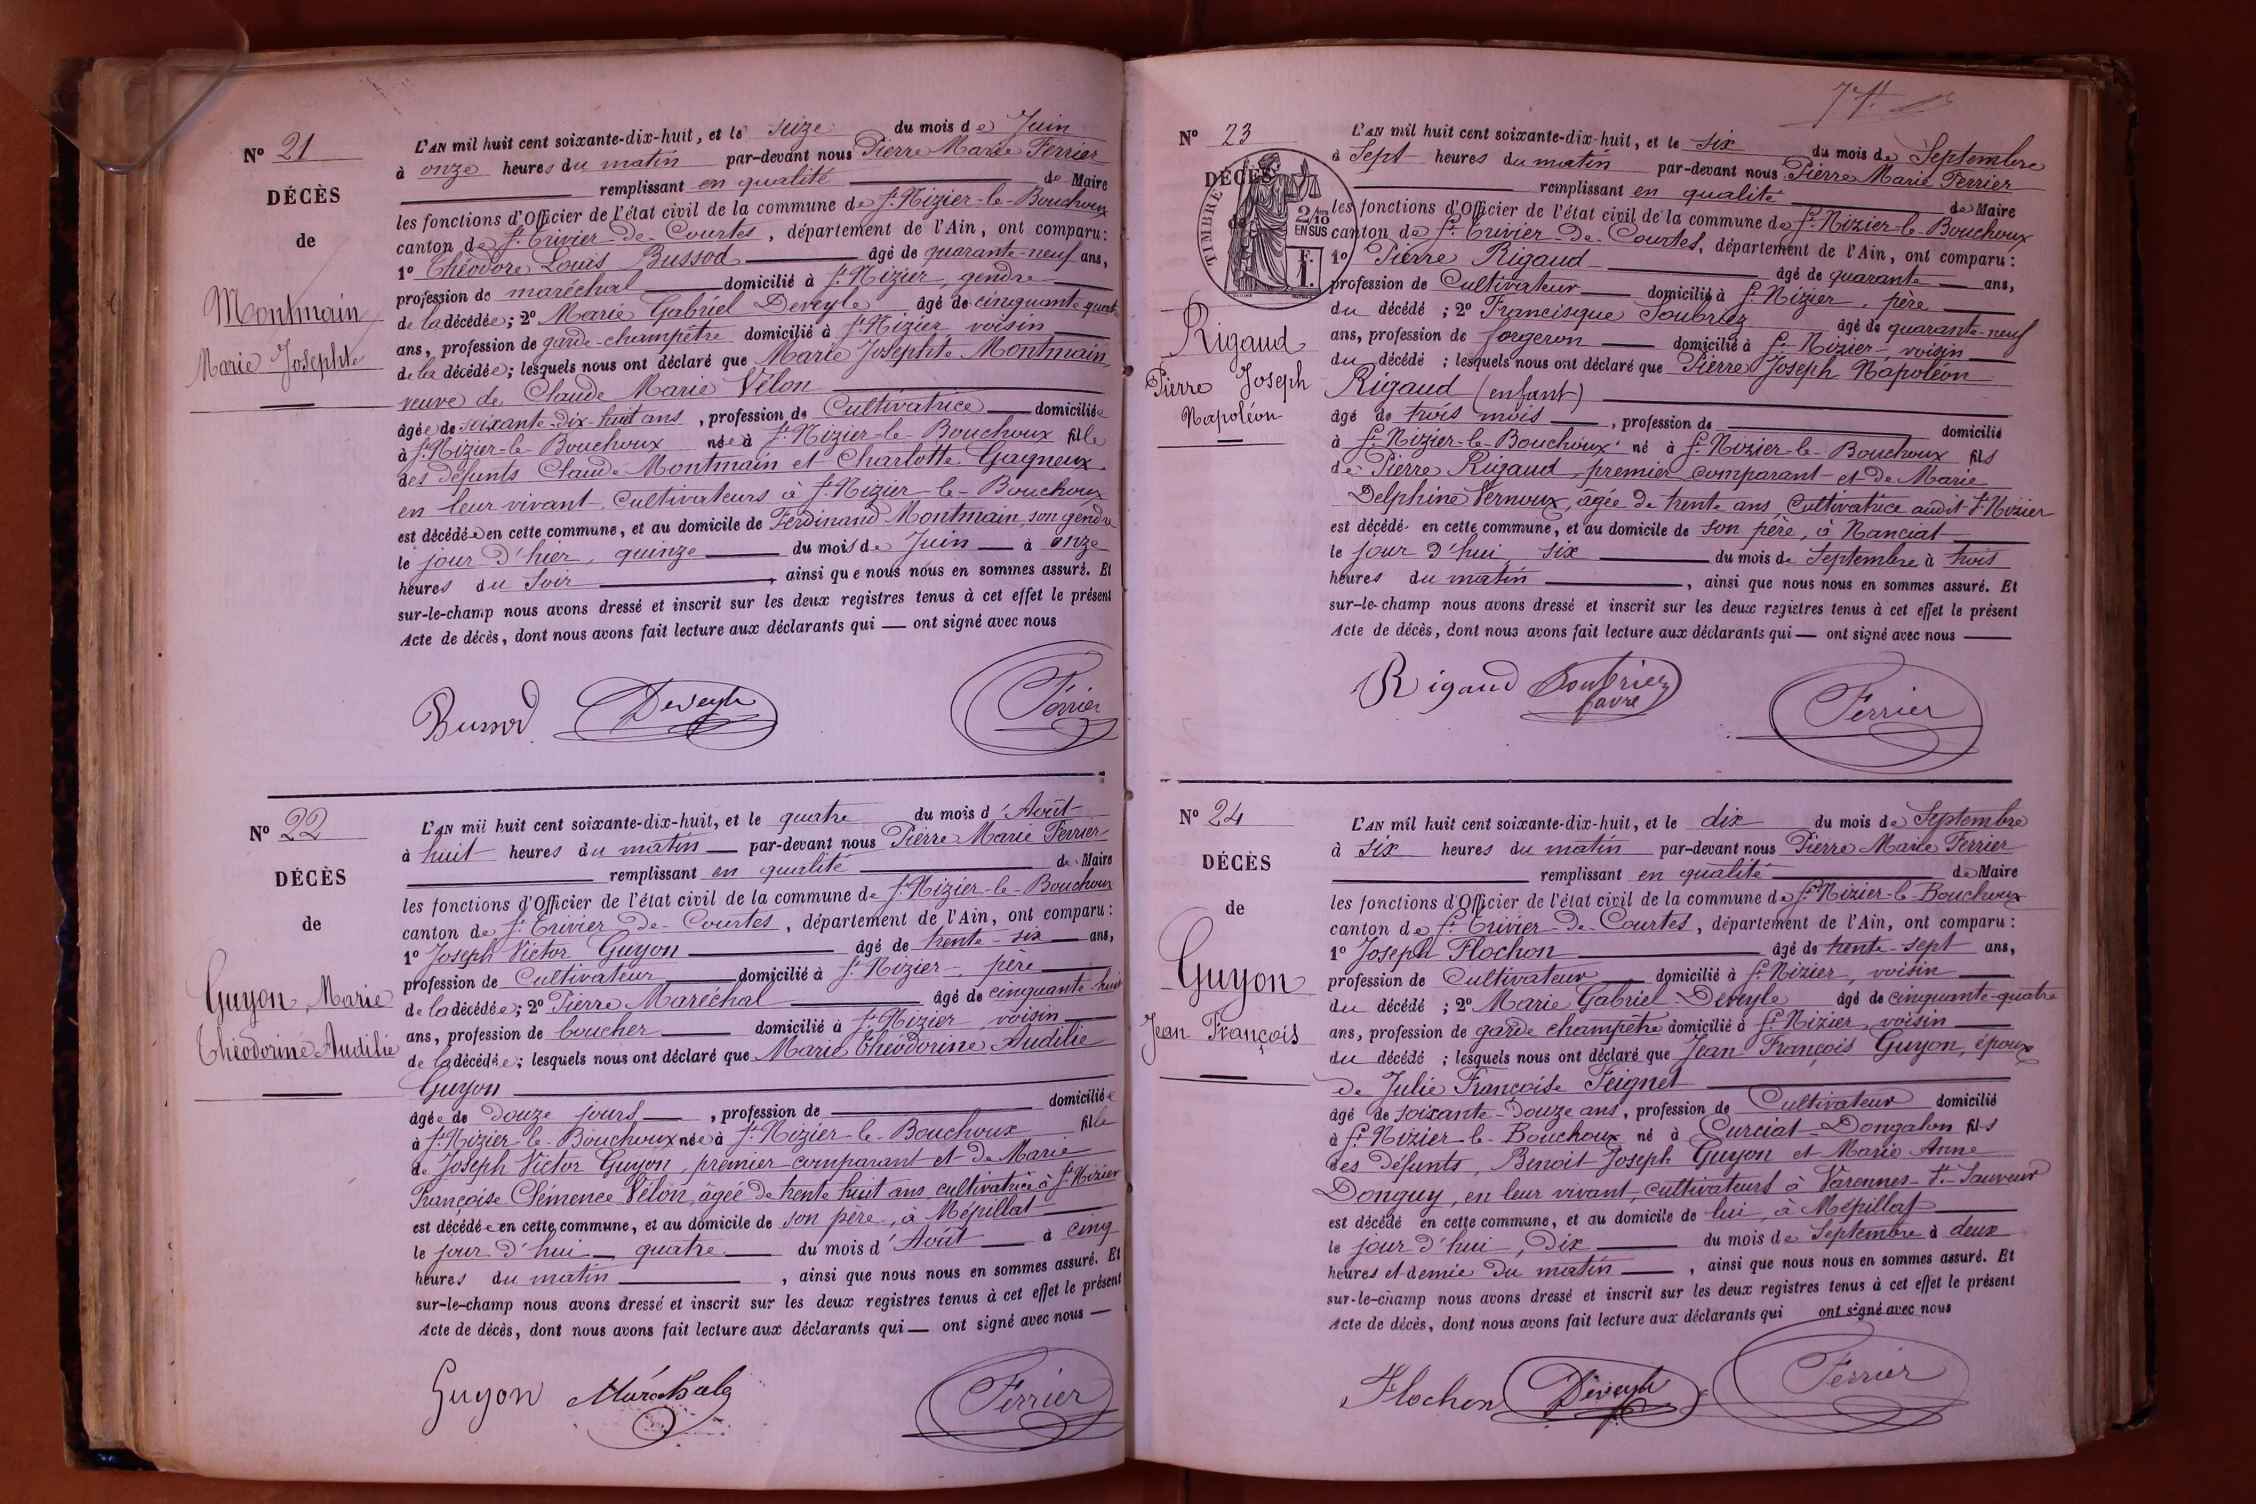 Nº 21
DÉCÈS
de
Montmain
Marie Josephte
L'AN mil huit cent soixante-dix-huit, et le seize du mois de Juin
à onze heures du matin par-devant nous Pierre Marie Ferrier
remplissant en qualité de Maire
les fonctions d'Officier de l'état civil de la commune de St Nizier-le-Bouchoux
canton de St Trivier-De-Courtes, département de l'Ain, ont comparu:
1º Théodore Louis Bussod âgé de quarante-neuf ans,
profession de maréchal domicilié à St Nizier, gendre
de la décédée; 2º Marie Gabriel Deveyle âgé de cinquante quatre
ans, profession de garde-champêtre domicilié à St Nizier voisin
de la décédée; lesquels nous ont déclaré que Marie Josephte Montmain,
veuve de Claude Marie Vélon
âgée de soixante-dix-huit ans, profession de Cultivatrice domiciliée
à St Nizier-le-Bouchoux née à St Nizier-le-Bouchoux fille
des défunts Claude Montmain et Charlotte Gagneux
en leur vivant Cultivateurs à St Nizier-le-Bouchoux
est décédée en cette commune, et au domicile de Ferdinand Montmain, son gendre
le jour d'hier, quinze du mois de Juin à onze
heures du soir, ainsi que nous nous en sommes assuré. Et
sur-le-champ nous avons dressé et inscrit sur les deux registres tenus à cet effet le présent
Acte de décès, dont nous avons fait lecture aux déclarants qui — ont signé avec nous
Bussod Deveyle Ferrier
Nº 22
DÉCÈS
de
Guyon, Marie
Théodorine Audilie
L'AN mil huit cent soixante-dix-huit, et le quatre du mois d'Août
à huit heures du matin par-devant nous Pierre Marie Ferrier
remplissant en qualité de Maire
les fonctions d'Officier de l'état civil de la commune de St Nizier-le-Bouchoux
canton de St Trivier-De-Courtes, département de l'Ain, ont comparu:
1º Joseph Victor Guyon âgé de trente-six ans,
profession de Cultivateur domicilié à St Nizier, père
de la décédée; 2º Pierre Maréchal âgé de cinquante-huit
ans, profession de boucher domicilié à St Nizier voisin
de la décédée; lesquels nous ont déclaré que Marie Théodorine Audilie
Guyon
âgée de douze jours, profession de domiciliée
à St Nizier-le-Bouchoux née à St Nizier-le-Bouchoux fille
de Joseph Victor Guyon, premier comparant et de Marie
Françoise Clémence Vélon, âgée de trente huit ans cultivatrice à St Nizier
est décédée en cette commune, et au domicile de son père, à Mépillat
le jour d'hui quatre du mois d'Août à cinq
heures du matin, ainsi que nous nous en sommes assuré. Et
sur-le-champ nous avons dressé et inscrit sur les deux registres tenus à cet effet le présent
Acte de décès, dont nous avons fait lecture aux déclarants qui — ont signé avec nous —
Guyon Ferrier
74.
Nº 23
DÉCÈS
de
TIMBRE
2/10
EN SUS
F.
Rigaud
Pierre Joseph
Napoléon
L'AN mil huit cent soixante-dix-huit, et le six du mois de Septembre
à Sept heures du matin par-devant nous Pierre Marie Ferrier
remplissant en qualité de Maire
les fonctions d'Officier de l'état civil de la commune de St Nizier-le-Bouchoux
canton de St Trivier-De-Courtes, département de l'Ain, ont comparu:
1º Pierre Rigaud âgé de quarante ans,
profession de Cultivateur domicilié à St Nizier, père
du décédé; 2º Francisque Soubriez âgé de quarante-neuf
ans, profession de forgeron domicilié à St Nizier, voisin
du décédé; lesquels nous ont déclaré que Pierre Joseph Napoléon
Rigaud (enfant)
âgé de trois mois, profession de domicilié
à St Nizier-le-Bouchoux né à St Nizier-le-Bouchoux fils
de Pierre Rigaud, premier comparant et de Marie
Delphine Vernoux, âgée de trente ans, Cultivatrice audit St Nizier
est décédé en cette commune, et au domicile de son père, à Nanciat
le jour d'hui, six du mois de Septembre à trois
heures du matin, ainsi que nous nous en sommes assuré. Et
sur-le-champ nous avons dressé et inscrit sur les deux registres tenus à cet effet le présent
Acte de décès, dont nous avons fait lecture aux déclarants qui — ont signé avec nous —
Rigaud Soubriez Ferrier
favre
Nº 24
DÉCÈS
de
Guyon
Jean François
L'AN mil huit cent soixante-dix-huit, et le dix du mois de Septembre
à six heures du matin par-devant nous Pierre Marie Ferrier
remplissant en qualité de Maire
les fonctions d'Officier de l'état civil de la commune de St Nizier-le-Bouchoux
canton de St Trivier-De-Courtes, département de l'Ain, ont comparu:
1º Joseph Flochon âgé de trente-sept ans,
profession de Cultivateur domicilié à St Nizier, voisin
du décédé; 2º Marie Gabriel Deveyle âgé de cinquante-quatre
ans, profession de garde champêtre domicilié à St Nizier voisin
du décédé; lesquels nous ont déclaré que Jean François Guyon, époux
de Julie Françoise Feignet
âgé de soixante-douze ans, profession de Cultivateur domicilié
à St Nizier-le-Bouchoux né à Curciat-Dongalon fils
des défunts, Benoit Joseph Guyon et Marie Anne
Donguy, en leur vivant, cultivateurs à Varennes-St-Sauveur
est décédé en cette commune, et au domicile de lui, à Mépillat
le jour d'hui, dix du mois de Septembre à deux
heures et demie du matin, ainsi que nous nous en sommes assuré. Et
sur-le-champ nous avons dressé et inscrit sur les deux registres tenus à cet effet le présent
Acte de décès, dont nous avons fait lecture aux déclarants qui ont signé avec nous
Flochon Deveyle Ferrier